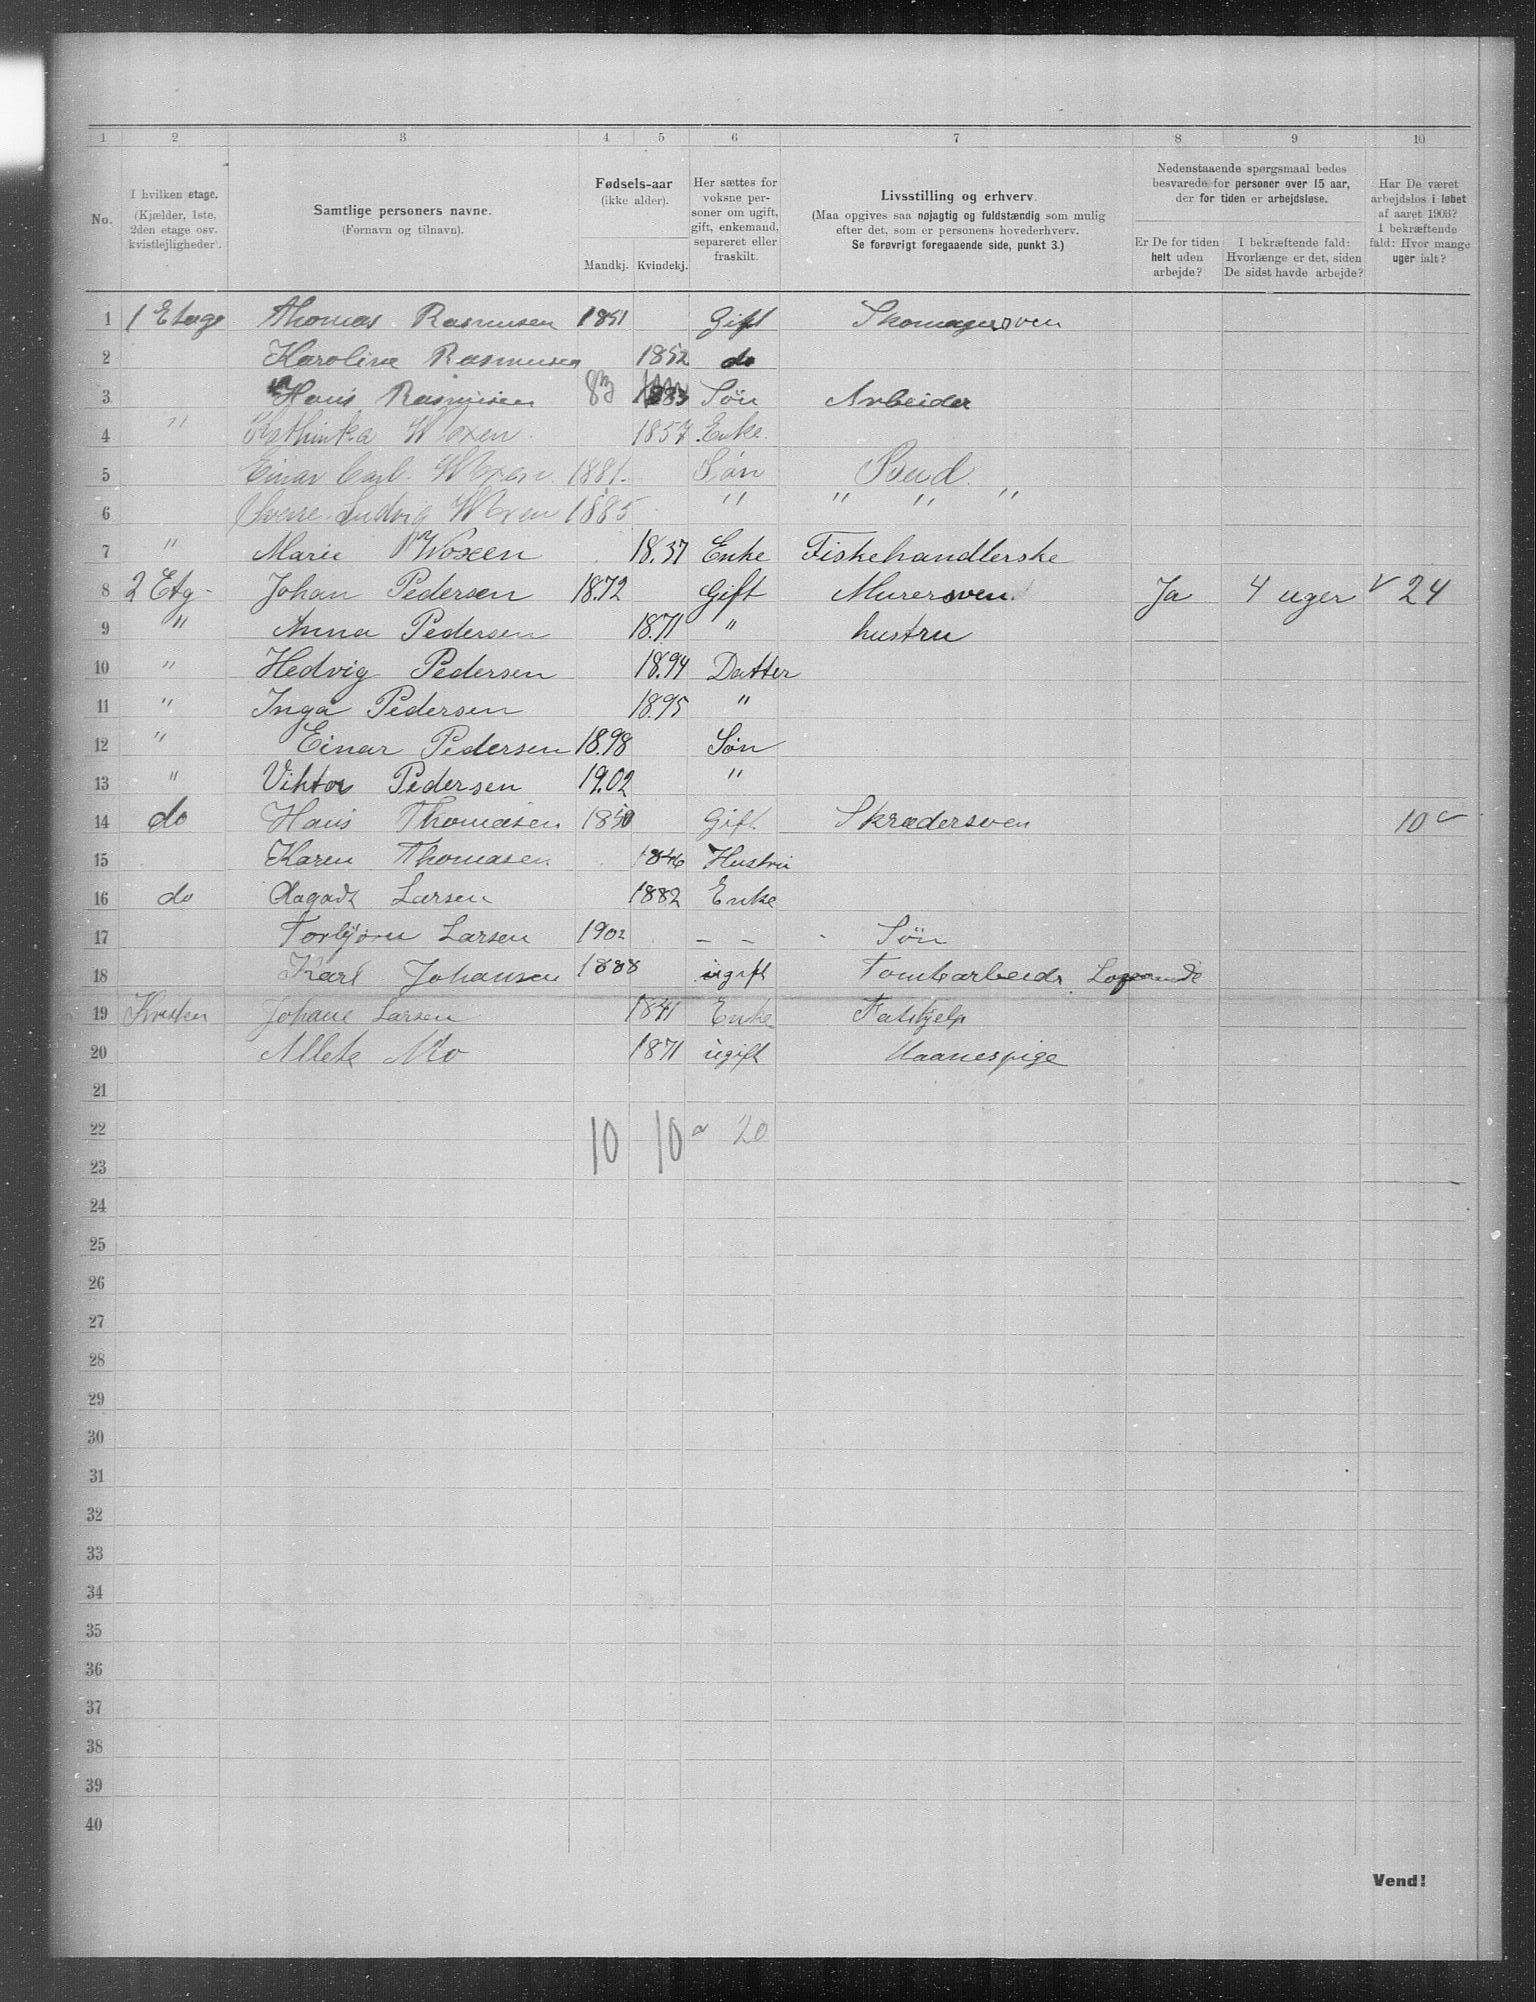 1 2 3 4 5 6 7 8 9 10
No.
I hvilken etage.
(Kjælder, 1ste,
2den etage osv.
kvistlejligheder).
Samtlige personers navne.
(Fornavn og tilnavn).
Fødsels-aar
(ikke alder).
Mandkj. Kvindekj.
Her sættes for
voksne per-
soner om ugift,
gift, enkemand,
separeret eller
fraskilt.
Livsstilling og erhverv.
(Maa opgives saa nøjagtig og fuldstændig som mulig
efter det, som er personens hovederhverv.
Se forøvrigt foregaaende side, punkt 3.)
Nedenstaaende spørgsmaal bedes
besvarede for personer over 15 aar,
der for tiden er arbejdsløse.
Er De for tiden
helt uden
arbejde?
I bekræftende fald:
Hvorlænge er det, siden
De sidst havde arbejde?
Har De været
arbejdsløs i løbet
af aaret 1903?
I bekræftende
fald: Hvor mange
uger ialt?
1 1 Etage Thomas Rasmusen 1851 Gift Skomagersven
2 Karoline Rasmusen 1852 do
3 Hans Rasmusen 83 1883 Søn Arbeider
4 " Woxen 1857 Enke
5 Einar Carl. Woxen 1881. Søn
6 Sverre Ludvig Woxen 1885 " " " "
7 " Marie Woxen 18.37 Enke Fiskehandlerske
8 2 Etg. Johan Pedersen 18.72 Gift Murersven Ja 4 uger v 24
9 " Anna Pedersen 18.71 " hustru
10 " Hedvig Pedersen 18.94 Datter
11 " Inga Pedersen 18.95 "
12 " Einar Pedersen 18.98 Søn
13 " Viktor Pedersen 19.02 "
14 do Hans Thomasen 1850 Gift Skrædersven 10 v
15 Karen Thomasen 1846 Hustru
16 do Aagadt Larsen 1882 Enke
17 Torbjørn Larsen 1902 - - Søn
18 Karl Johansen 1888 ugift Losjerende
19 Kvisten Johane Larsen 1841 Enke Fattihjelp
20 Allete Mo 1871 ugift Maanespige
21
22 10 10 20
23
24
25
26
27
28
29
30
31
32
33
34
35
36
37
38
39
40
Vend!